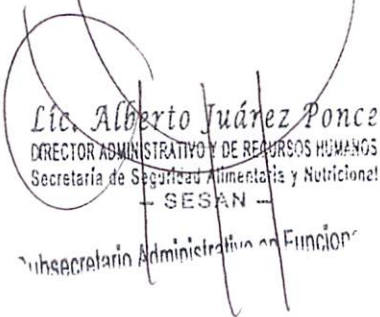 Lic. Alberto Juárez Ponce
DIRECTOR ADMINISTRATIVO Y DE RECURSOS HUMANOS
Secretaría de Seguridad Alimentaria y Nutricional
- SESAN -
Subsecretario Administrativo en Funciones